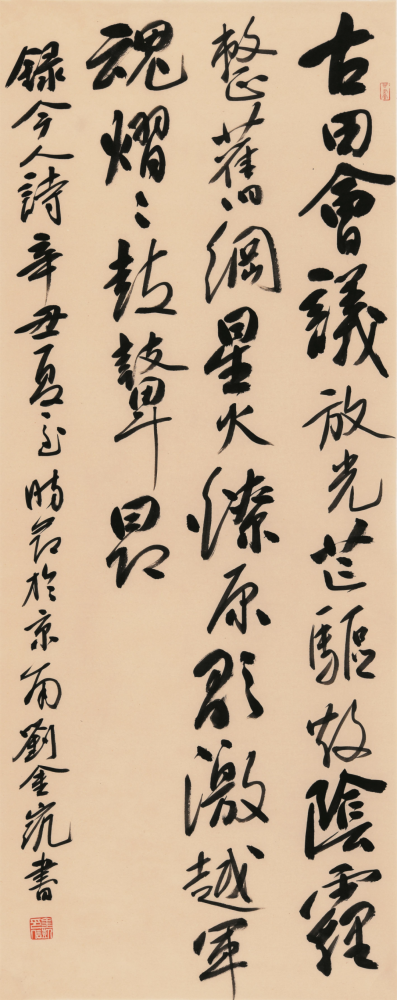 古田會議放光芒驅散陰霾
整舊綱星火燎原歌激越軍
魂熠〻鼓聲昂
録今人詩辛丑夏至時節於京南劉金凱書